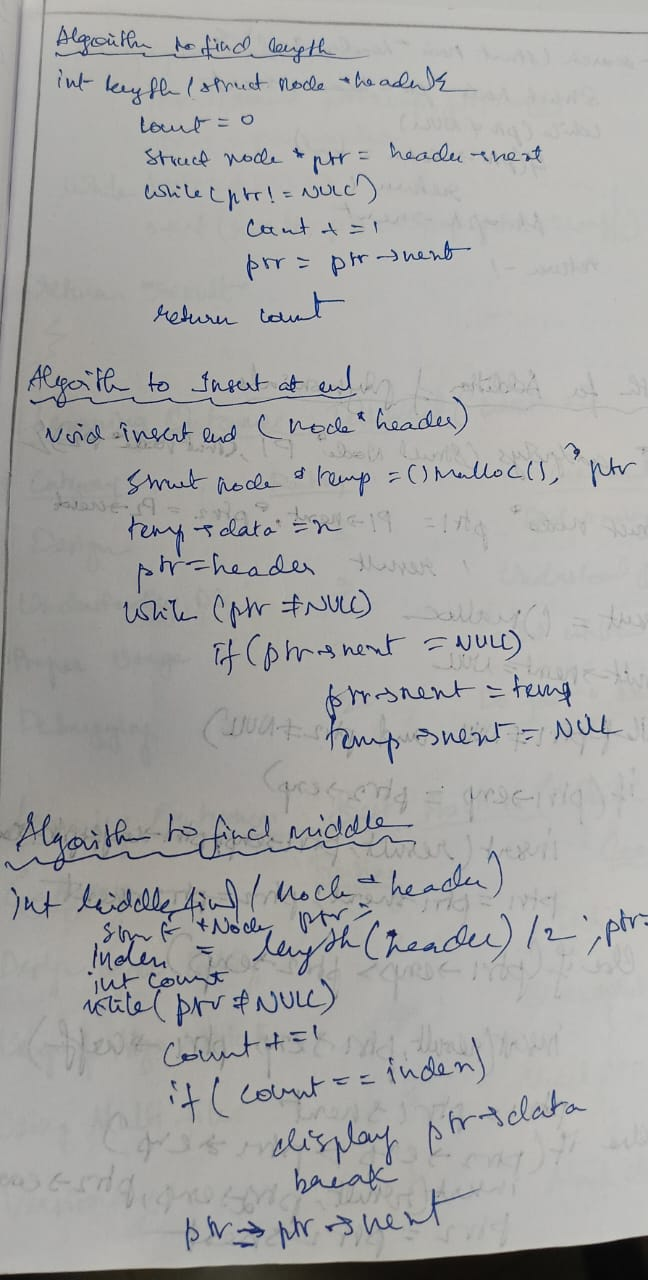 Algorithm to find length
int length (struct node *header){
count = 0
struct node * ptr = header→next
while (ptr != NULL)
count += 1
ptr = ptr→next
return count
Algorith to Insert at end
void insert end (node * header)
struct node * temp = () Malloc(), ptr
temp→data = x
ptr = header
while (ptr ≠ NULL)
if (ptr→next = NULL)
ptr→next = temp
temp→next = NULL
Algorithm to find middle
int middle find (node * header)
struct *Node ptr =
index = length (header) / 2 ; ptr=
int count
while (ptr ≠ NULL)
count += 1
if (count == index)
display ptr→data
break
ptr = ptr→next